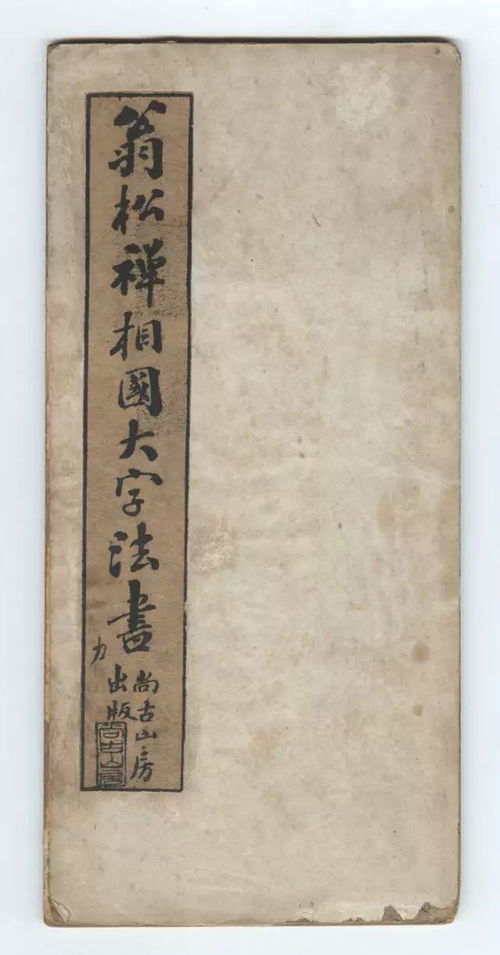 翁松禪相國大字法書
尚古山房
出版
尚古山房